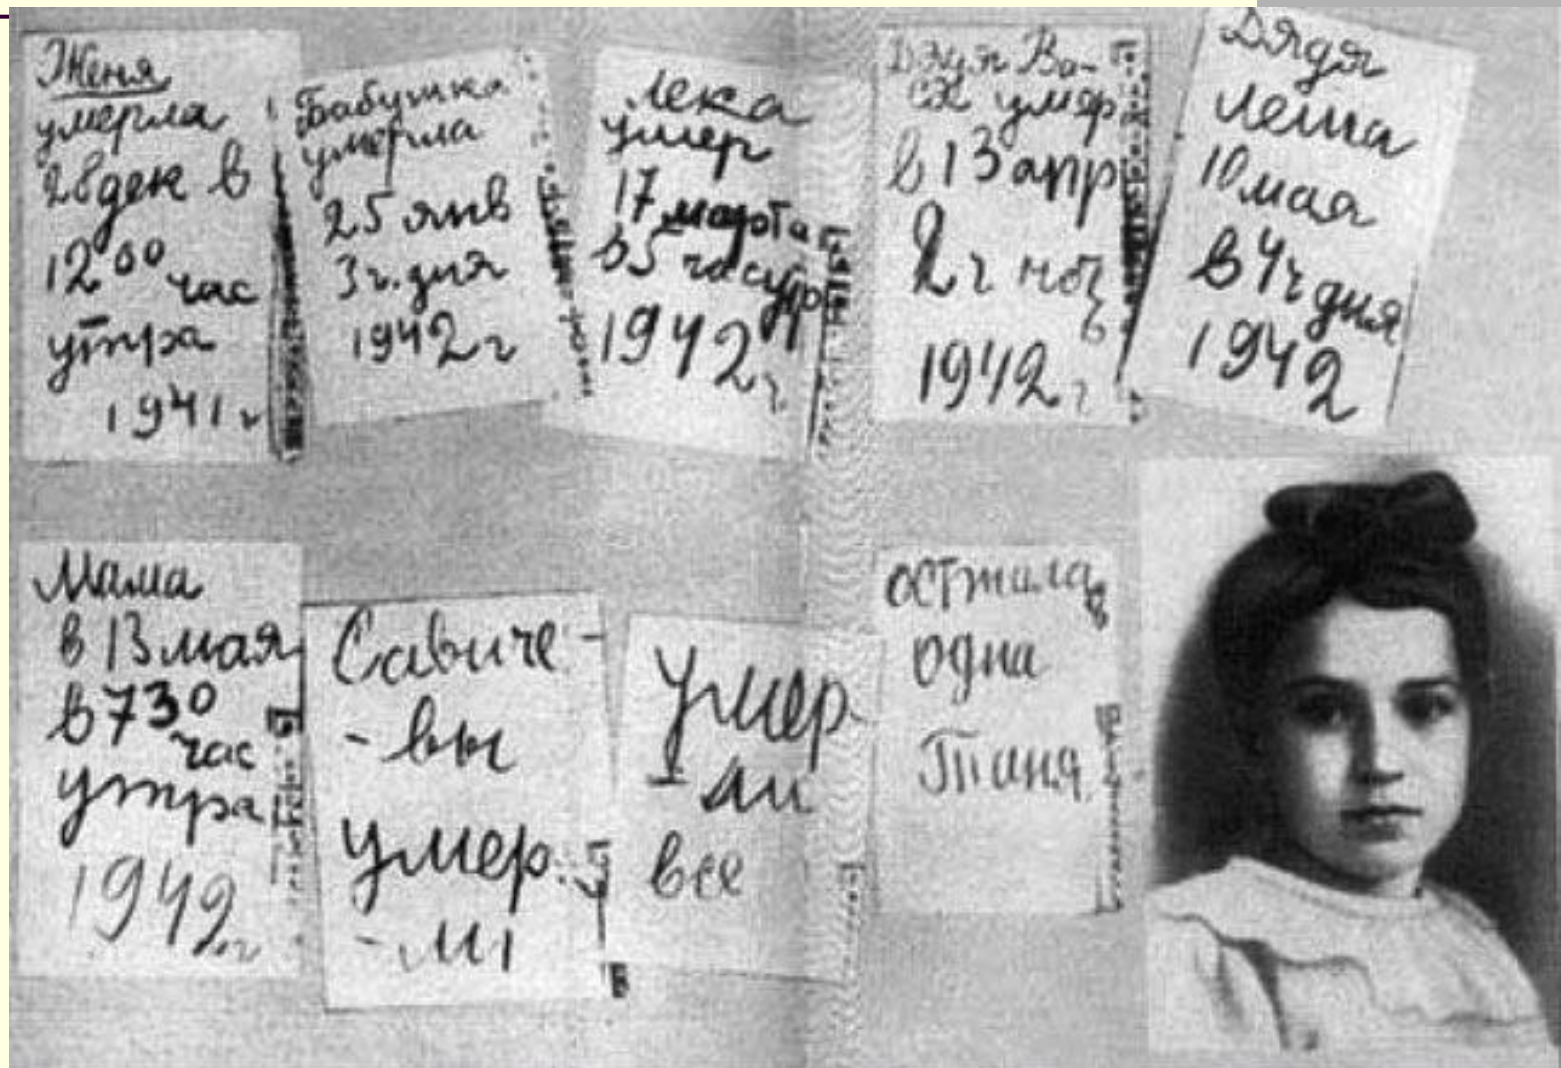 Женя
умерла
28 дек в
12⁰⁰ час
утра
1941 г
Бабушка
умерла
25 янв
3 ч. дня
1942 г
Лека
умер
17 марта
в 5 час утр
1942 г.
Дядя Ва-
ся умер
в 13 апр
2 ч ноч
1942 г
Дядя
Леша
10 мая
в 4 ч дня
1942
Мама
в 13 мая
в 7 30
час
утра
1942 г
Савиче-
-вы
умер
-ли
Умер-
-ли
все
осталась
одна
Таня